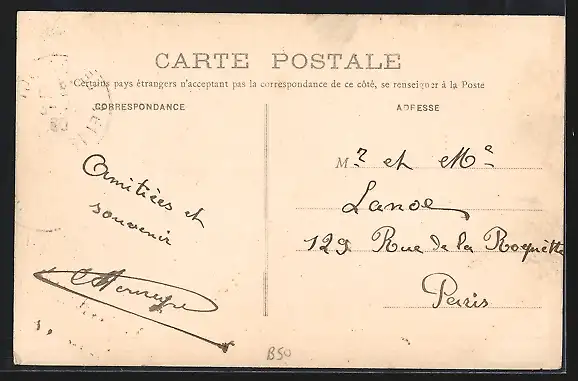 CARTE POSTALE
Certains pays étrangers n'acceptant pas la correspondance de ce côté, se renseigner à la Poste
CORRESPONDANCE
ADRESSE
Amitiées et
souvenir
Mr et Me
Lanoe
129 Rue de la Roquette
Paris
B50